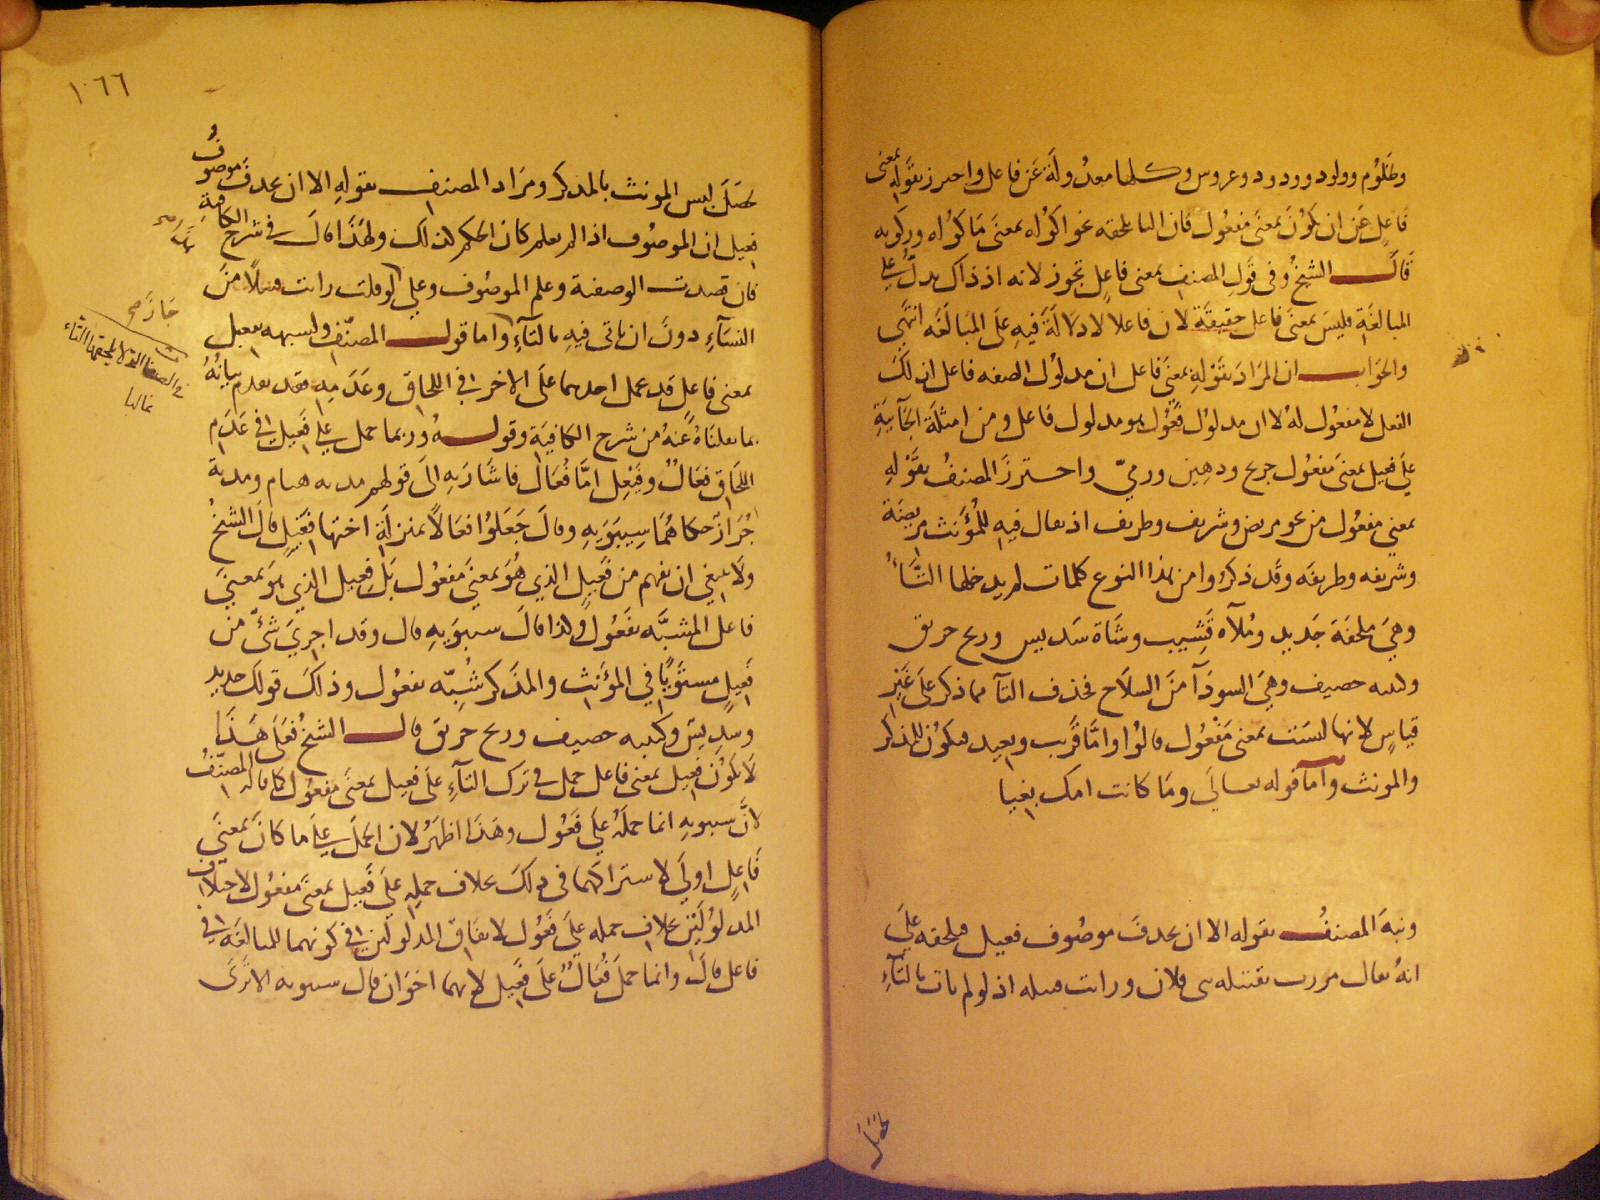 وظلوم وولود وودود وعروس وكلها معدولة عن فاعل واحترز بقوله بمعنى
فاعل عن ان يكون بمعنى مفعول فان التا تلحقه نحو اكوله بمعنى ماكوله وركوبه
قال الشيخ وفى قول المصنف بمعنى فاعل تجوز لانه اذ ذاك يدل على
المبالغة فليس بمعنى فاعل حقيقة لان فاعلا لا دلالة فيه على المبالغه انتهى
والجواب ان المراد بقوله بمعنى فاعل ان مدلول الصفه فاعل لذلك
الفعل لا مفعول له لا ان مدلول فعول هو مدلول فاعل ومن امثلة
على فعيل بمعنى مفعول جريح ودهين ورمي واحترز المصنف بقوله
بمعنى مفعول من نحو مريض وشريف وظريف اذ يقال فيه للمؤنث مريضة
وشريفه وظريفه وقد ذكروا من هذا النوع كلمات لم يدخلها التاء
وهى ملحفة جديد وملآه قشيب وشاة سديس وريح خريق
وكتيبه خصيف وهى السودآ من السلاح فحذف التآ مما ذكر على غير
قياس لانها ليست بمعنى مفعول قالوا واما قريب وبعيد فيكون للمذكر
والمونث واما قوله تعالى وما كانت امك بغيا
ونبه المصنف بقوله الا ان يحذف موصوف فعيل فتلحقه على
انه يقال مررت بقتيلة بنى فلان ورايت قتيله اذ لو لم يات بالتآء
لحصل
١٠٦٦
لحصل لبس المونث بالمذكر ومراد المصنف بقوله الا ان يحذف موصوف
فعيل ان الموصوف اذا لم يعلم كان الحكم كذلك ولهذا قال فى شرح الكافية
فان قصدت الوصفية وعلم الموصوف وعلى لو قلت رايت قتيلا من
النسآء دون ان ياتى فيه بالتآء واما قول المصنف وليشبهه بفعيل
بمعنى فاعل قد يحمل احدهما على الاخر فى اللحاق وعدمه فقد تقدم بيانه
بما نقلناه عنه من شرح الكافية وقوله وربما حمل على فعيل فى عدم
اللحاق فعال وفعل اما فعال فاشار به الى قولهم مديه هذام ومدية
جراز حكاهما سيبويه وقال جعلوا فعالا بمنزلة اختها فعيل قال الشيخ
ولا ينبغى ان يفهم من فعيل الذي هو بمعنى مفعول بل فعيل الذي هو بمعنى
فاعل المشبه بفعول ولذا قال سيبويه قال وقد اجري شئ من
فعيل مستويا في المؤنث والمذكر شبه بفعول وذلك قولك جديد
وسديس وكتيبه خصيف وريح خريق قال الشيخ فعلى هذا
لا يكون فعيل بمعنى فاعل حمل فى ترك التآء على فعيل بمعنى مفعول كما قاله المصنف
لان سيبويه انما حمله على فعول وهذا اظهر لان الحمل على ما كان بمعنى
فاعل اولى لاشتراكهما فى ذلك بخلاف حمله على فعيل بمعنى مفعول لاختلاف
المدلولين بخلاف حمله على فعول لاتفاق المدلولين فى كونهما للمبالغه فى
فاعل قال وانما حمل فعال على فعيل لانهما اخوان قال سيبويه الا ترى
جاز صح
فى الصفات التى لا يلحقها التاء
غالبا